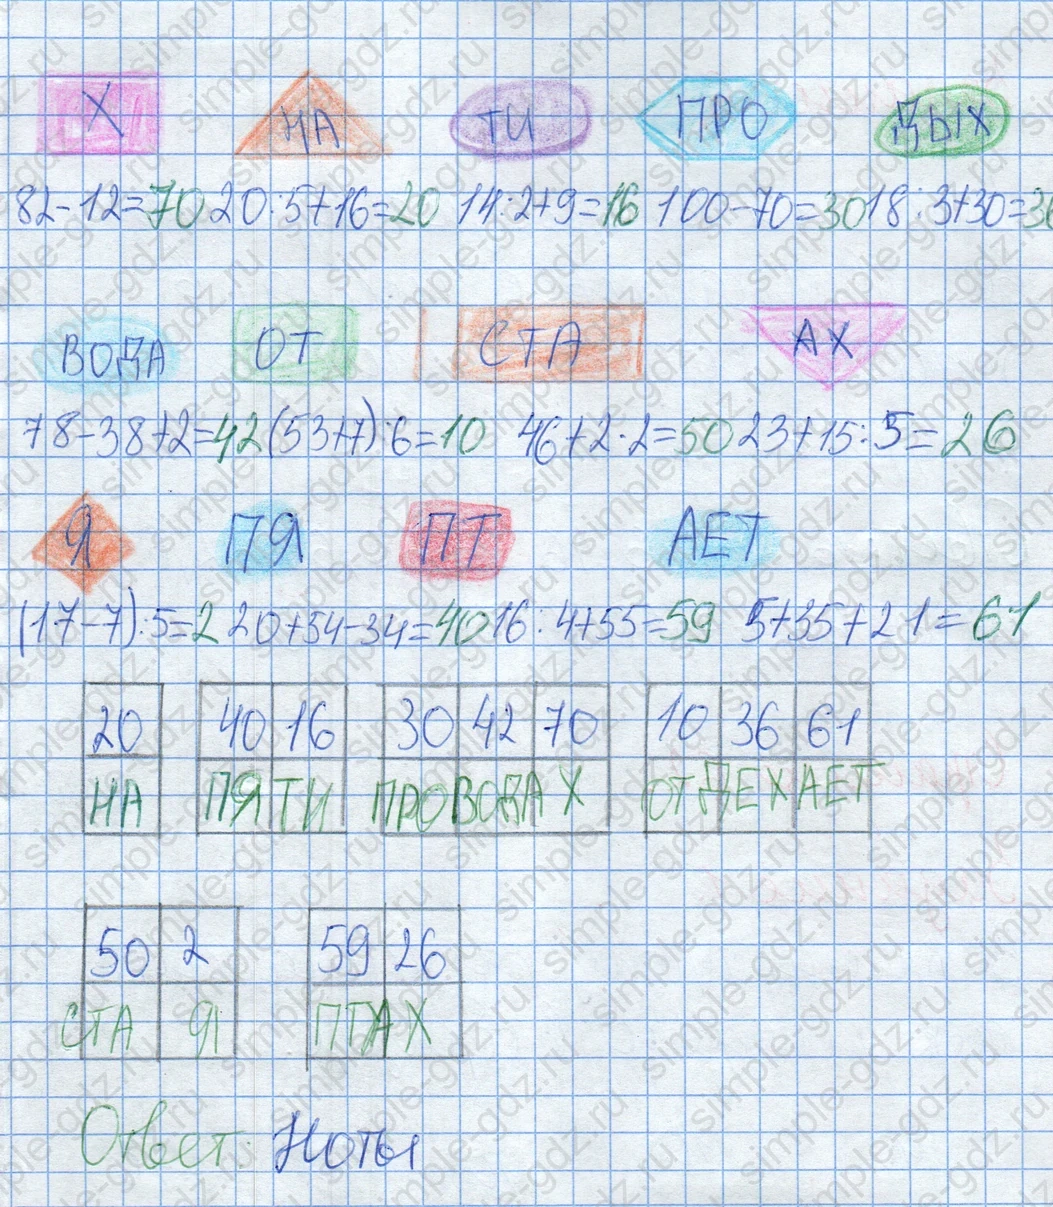 Х НА ТИ ПРО ДЫХ
82-12=70 20:5+16=20 14:2+9=16 100-70=30 18:3+30=36
ВОДА ОТ СТА АХ
78-38+2=42 (53+7):6=10 46+2·2=50 23+15:5=26
Я ПЯ ПТ АЕТ
(17-7):5=2 20+54-34=40 16:4+55=59 5+35+21=61
20 40 16 30 42 70 10 36 61
НА ПЯ ТИ ПРО ВОДА Х ОТ ДЕХ АЕТ
50 2 59 26
СТА Я ПТ АХ
Ответ: Ноты
simple-gdz.ru